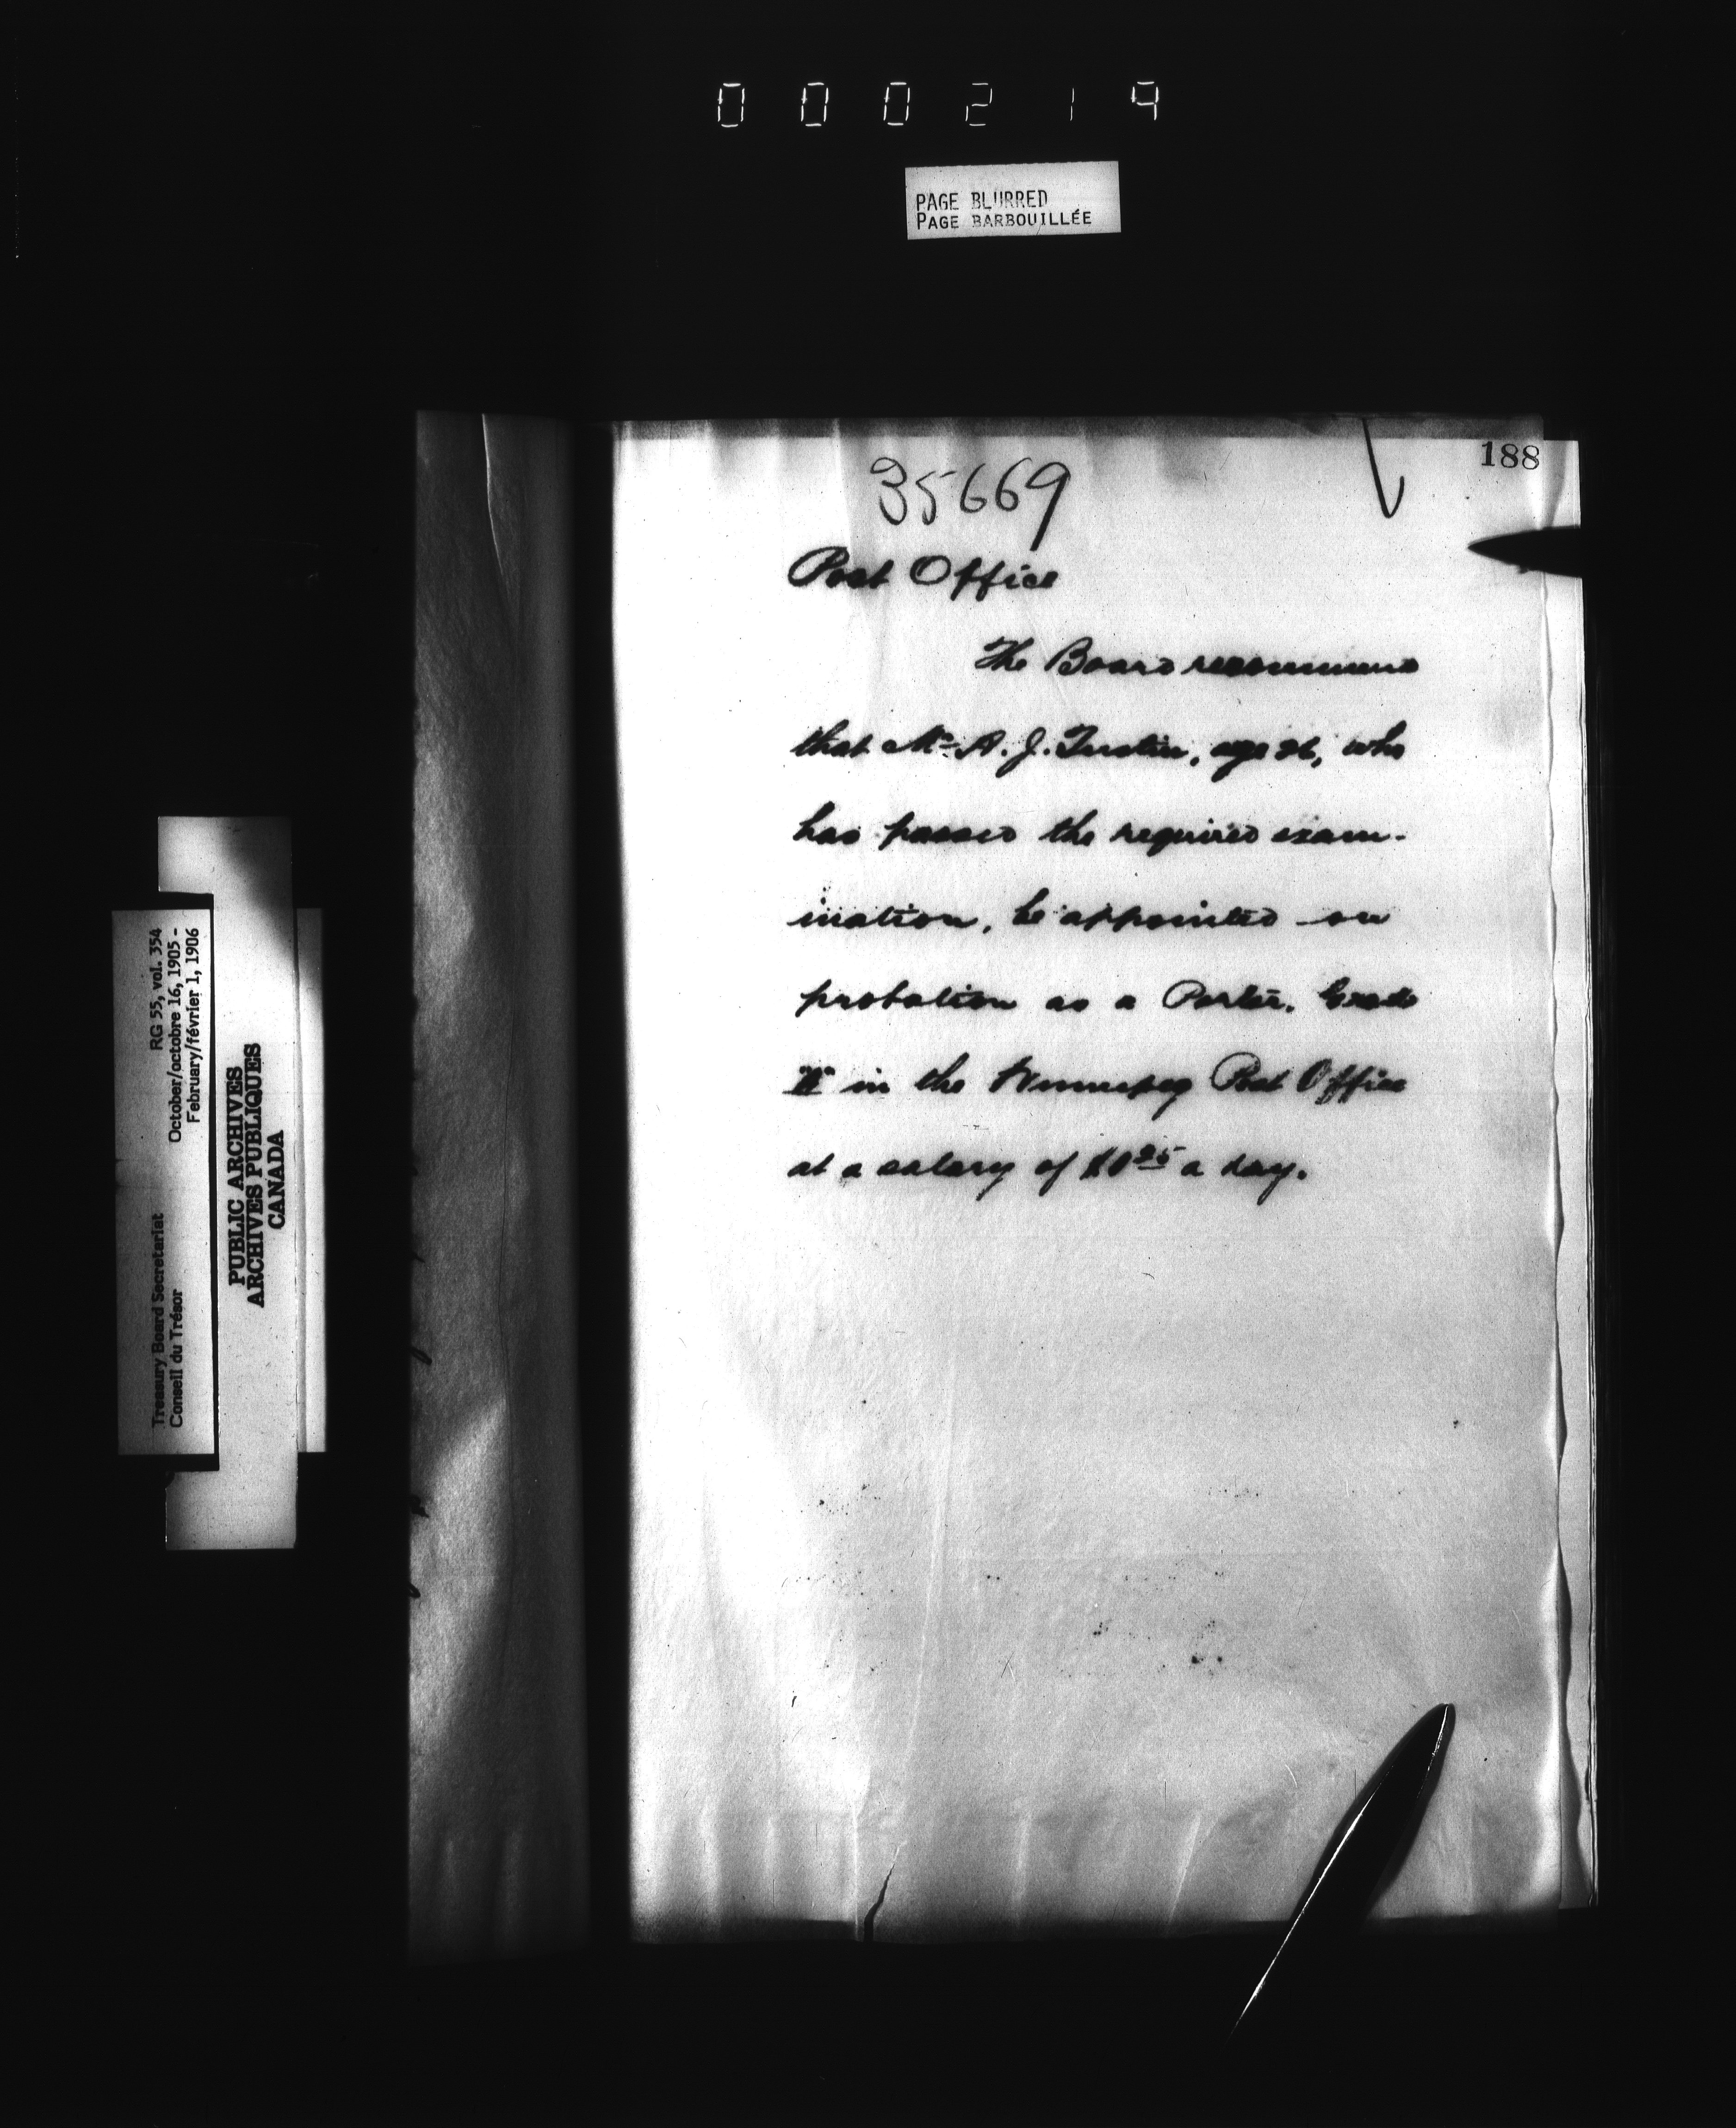 000219
PAGE BLURRED
PAGE BARBOUILLÉE
188
35669
Post Office
The Board recommend
that Mr. A. J. age 26, who
has passed the required exam-
ination, be appointed on
probation as a Porter, Grade
in the Winnipeg Post Office
at a salary of a day.
Treasury Board Secretariat RG 55, vol. 354
Conseil du Trésor October/octobre 16, 1905 -
February/février 1, 1906
PUBLIC ARCHIVES
ARCHIVES PUBLIQUES
CANADA